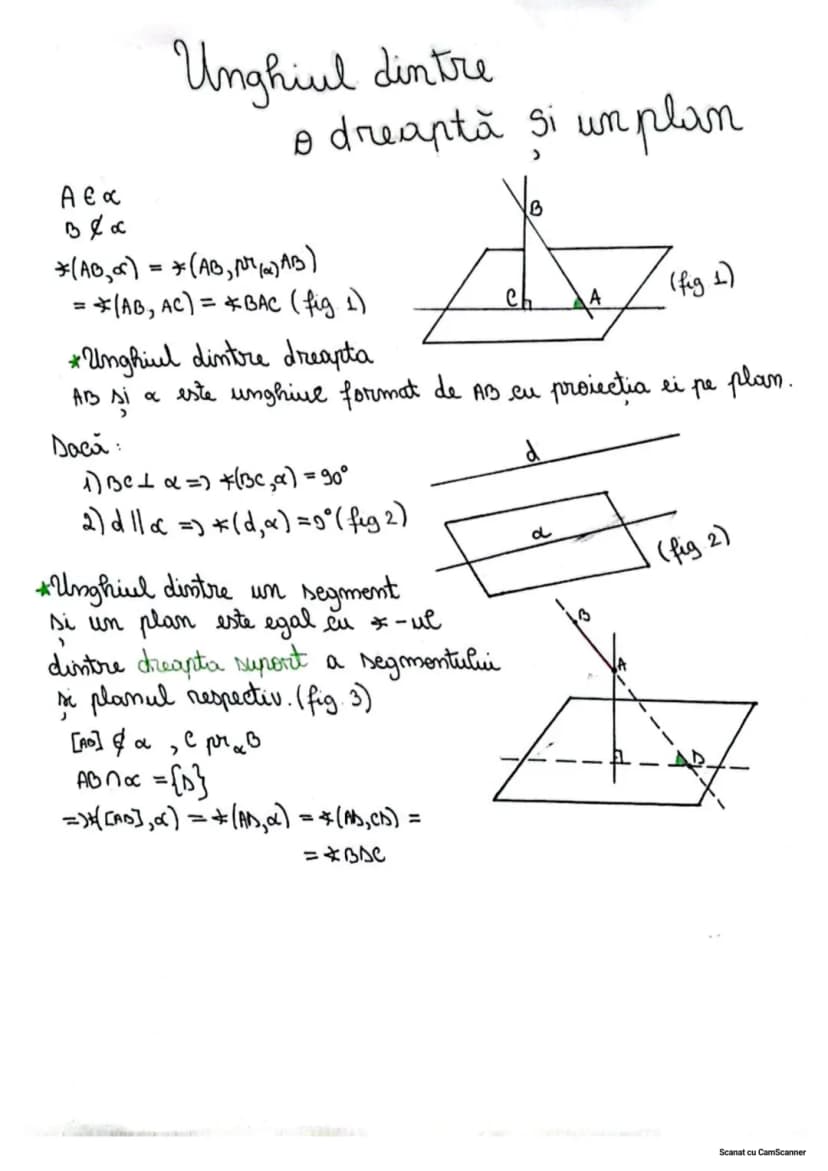 Unghiul dintre
o dreaptă și un plan
A ∈ α
B ∉ α
∢(AB, α) = ∢(AB, pr(α) AB)
= ∢(AB, AC) = ∢BAC (fig 1)
B
C
A
(fig 1)
*Unghiul dintre dreapta
AB și α este unghiul format de AB cu proiecția ei pe plan.
Dacă:
1) BC ⊥ α => ∢(BC, α) = 90°
2) d || α => ∢(d, α) = 0° (fig 2)
d
α
(fig 2)
*Unghiul dintre un segment
și un plan este egal cu ∢-ul
dintre dreapta suport a segmentului
și planul respectiv. (fig. 3)
[AB] ∉ α, C pr α B
AB ∩ α = {D}
=> ∢([AB], α) = ∢(AD, α) = ∢(AD, CD) =
= ∢BDC
B
A
D
Scanat cu CamScanner